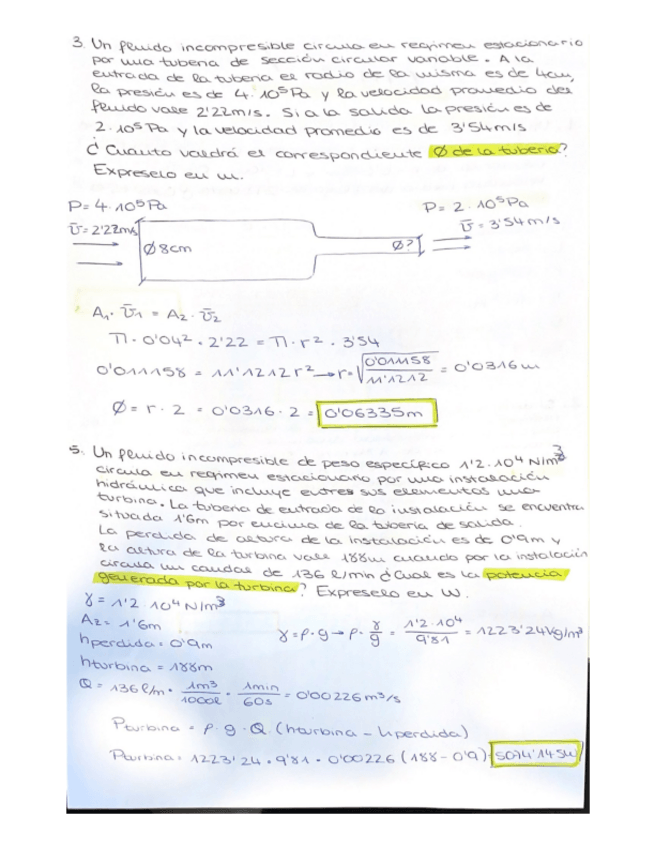 3. Un fluido incompresible circula en regimen estacionario
por una tuberia de sección circular variable. A la
entrada de la tuberia el radio de la misma es de 4cm,
la presión es de 4·10⁵Pa y la velocidad promedio del
fluido vale 2'22m/s. Si a la salida la presión es de
2·10⁵Pa y la velocidad promedio es de 3'54m/s
¿Cuanto valdrá el correspondiente Ø de la tuberia?
Expreselo en m.
P= 4·10⁵Pa P= 2·10⁵Pa
v̄=2'22m/s v̄=3'54m/s
Ø8cm Ø?
A₁·v̄₁ = A₂·v̄₂
π·0'04²·2'22 = π·r²·3'54
0'011158 = 11'1212r² → r=√(0'011158/11'1212) = 0'0316m
Ø= r·2 = 0'0316·2 = 0'06335m
5. Un fluido incompresible de peso específico 1'2·10⁴N/m³
circula en regimen estacionario por una instalación
hidráulica que incluye entres sus elementos una
turbina. La tuberia de entrada de la instalación se encuentra
situada 1'6m por encima de la tubería de salida.
La perdida de altura de la instalación es de 0'9m y
la altura de la turbina vale 188m cuando por la instalación
circula un caudal de 136 l/min ¿Cual es la potencia
generada por la turbina? Expreselo en W.
γ=1'2·10⁴N/m³
Az= 1'6m γ=ρ·g→ρ·γ/g = 1'2·10⁴/9'81 = 1223'24Kg/m³
hperdida= 0'9m
hturbina = 188m
Q= 136l/m·1m³/1000l·1min/60s = 0'00226m³/s
Pturbina = ρ·g·Q·(hturbina - hperdida)
Pturbina= 1223'24·9'81·0'00226(188-0'9)= 5074'145W